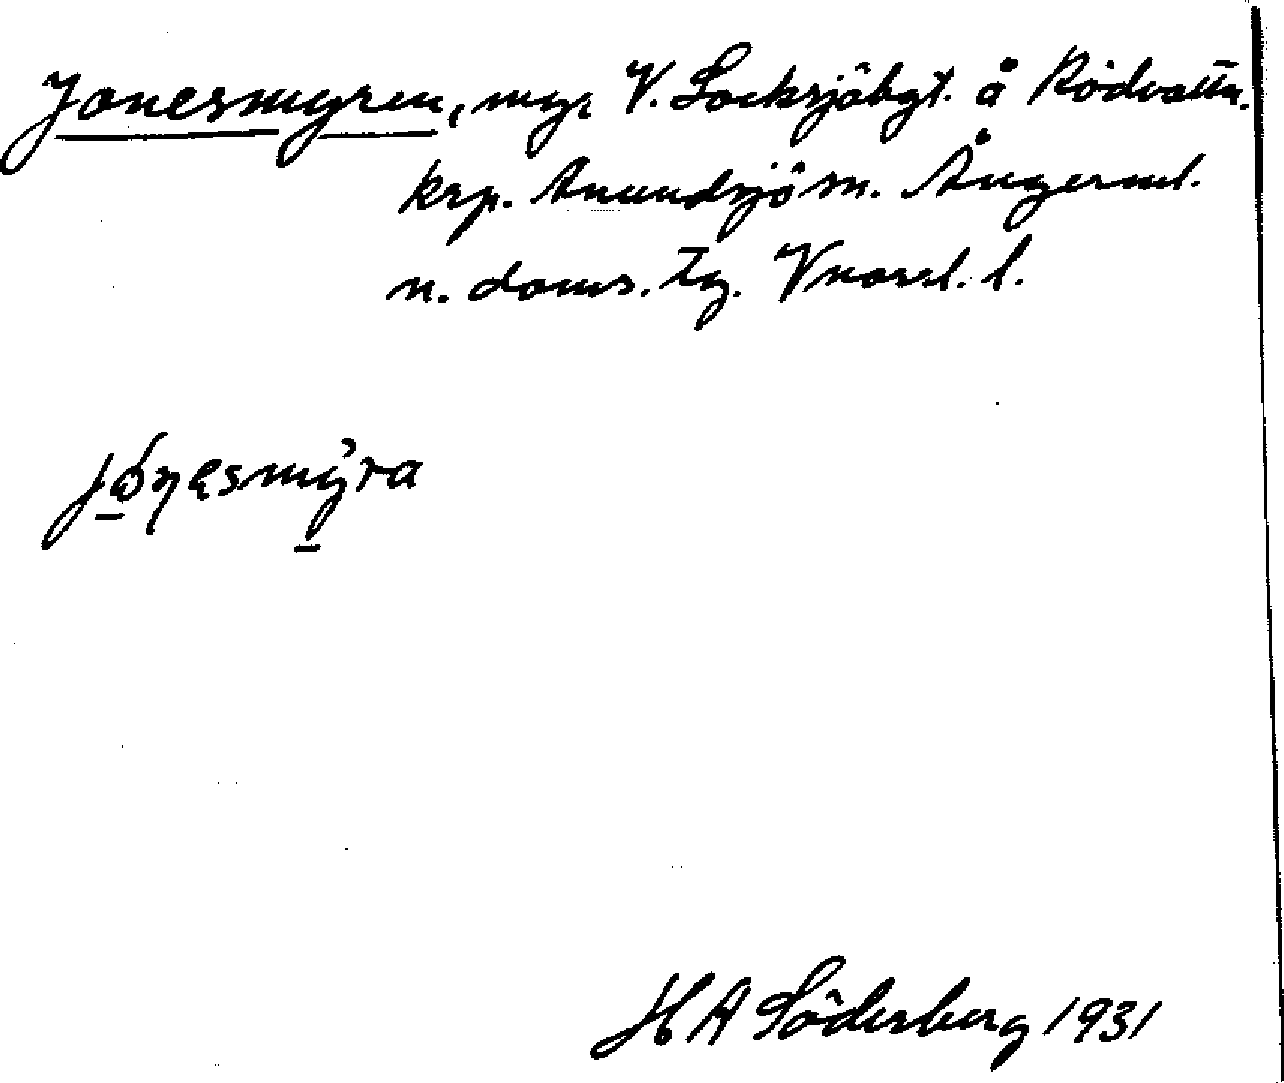 Jonesmyren, myr V. Locksjöbgt. å Rödvattn.
krp. Anundsjö sn. Ångerml.
n. doms. tg. Vnorrl. l.
jónesmy̆ra
H A Söderberg 1931